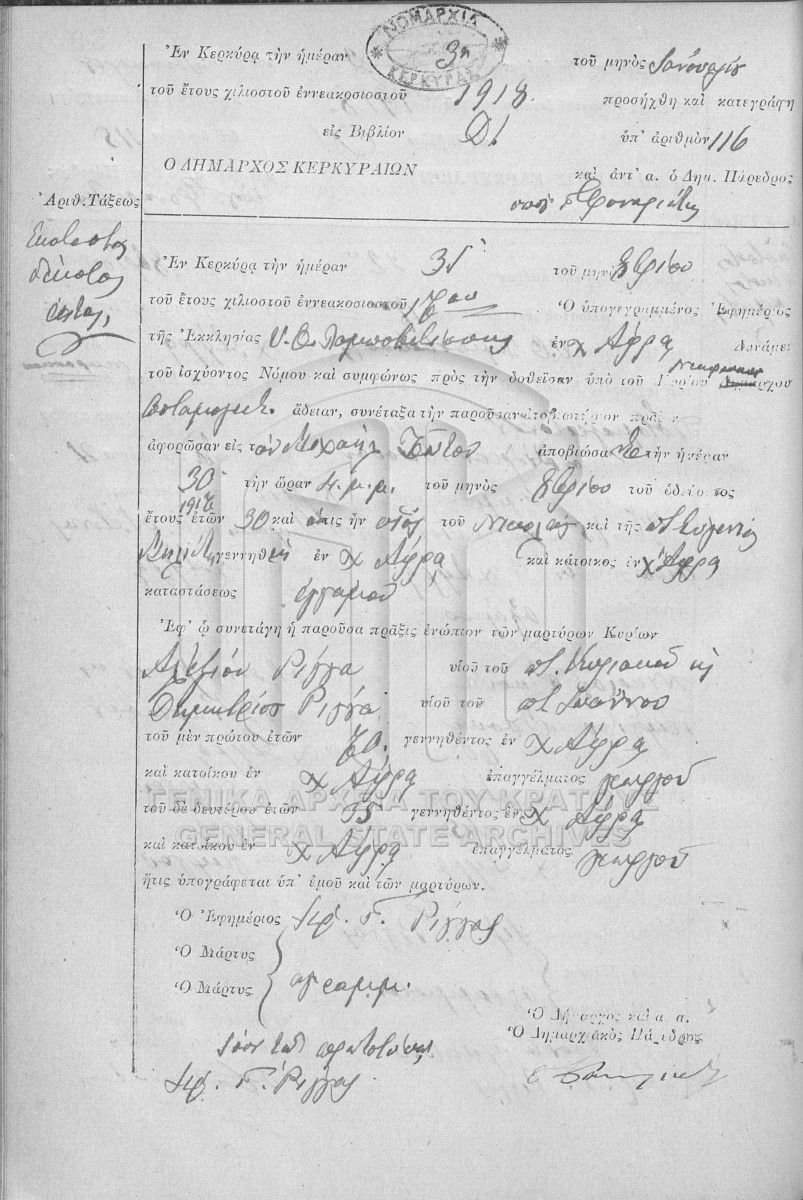 ΝΟΜΑΡΧΙΑ
ΚΕΡΚΥΡΑΣ
Ἐν Κερκύρᾳ τὴν ἡμέραν 3η τοῦ μηνὸς Ἰανουαρίου
τοῦ ἔτους χιλιοστοῦ ἐννεακοσιοστοῦ 1918 προσήχθη καὶ κατεγράφη
εἰς Βιβλίον ὑπ' ἀριθμὸν 116
Ο ΔΗΜΑΡΧΟΣ ΚΕΡΚΥΡΑΙΩΝ καὶ ἀντ' α. ὁ Δημ. Πάρεδρος
Ἀριθ. Τάξεως
Ἑκατοστὸς
δέκατος
Ἐν Κερκύρᾳ τὴν ἡμέραν 31 τοῦ μηνὸς
τοῦ ἔτους χιλιοστοῦ ἐννεακοσιοστοῦ Ὁ ὑπογεγραμμένος Ἐφημέριος
τῆς Ἐκκλησίας Υ. Θ. ἐν χ Ἄφρα Δυνάμει
τοῦ ἰσχύοντος Νόμου καὶ συμφώνως πρὸς τὴν δοθεῖσαν ὑπὸ τοῦ Κυρίου
ἄδειαν, συνέταξα τὴν παροῦσαν ἀποβιωτήριον πρᾶξιν
ἀφορῶσαν εἰς τὸν Μιχαὴλ ἀποβιώσαντα τὴν ἡμέραν
30 τὴν ὥραν 4. μ. μ. τοῦ μηνὸς τοῦ ὁδεύοντος
ἔτους 1917 ἐτῶν 30 καὶ ὅστις ἦν υἱὸς τοῦ Νικολάου καὶ τῆς π. Εὐγενίας
γεννηθεὶς ἐν χ Ἄφρα καὶ κάτοικος ἐν χ Ἄφρα
καταστάσεως ἐγγάμου
Ἐφ' ᾧ συνετάγη ἡ παροῦσα πρᾶξις ἐνώπιον τῶν μαρτύρων Κυρίων
Ἀλεξίου Ρίγγα υἱοῦ τοῦ π. Κυριακοῦ κ
Δημητρίου Ρίγγα υἱοῦ τοῦ π. Ἰωάννου
τοῦ μὲν πρώτου ἐτῶν γεννηθέντος ἐν χ Ἄφρα
καὶ κατοίκου ἐν χ Ἄφρα ἐπαγγέλματος γεωργοῦ
τοῦ δὲ δευτέρου ἐτῶν 35 γεννηθέντος ἐν χ Ἄφρα
καὶ κατοίκου ἐν χ Ἄφρα ἐπαγγέλματος γεωργοῦ
ἥτις ὑπογράφεται ὑπ' ἐμοῦ καὶ τῶν μαρτύρων.
Ὁ Ἐφημέριος Ἱερ. Γ. Ρίγγας
Ὁ Μάρτυς
Ὁ Μάρτυς ἀγράμμ.
Ὁ Δήμαρχος καὶ α. α.
Ὁ Δημαρχιακὸς Πάρεδρος
Ἴσον τῷ πρωτοτύπῳ
Ἱερ. Γ. Ρίγγας
ΓΕΝΙΚΑ ΑΡΧΕΙΑ ΤΟΥ ΚΡΑΤΟΥΣ
GENERAL STATE ARCHIVES